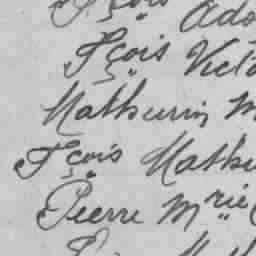 Fçois Ado
Fçois Victo
Mathurin M
Fçois Mathu
Pierre Mrie